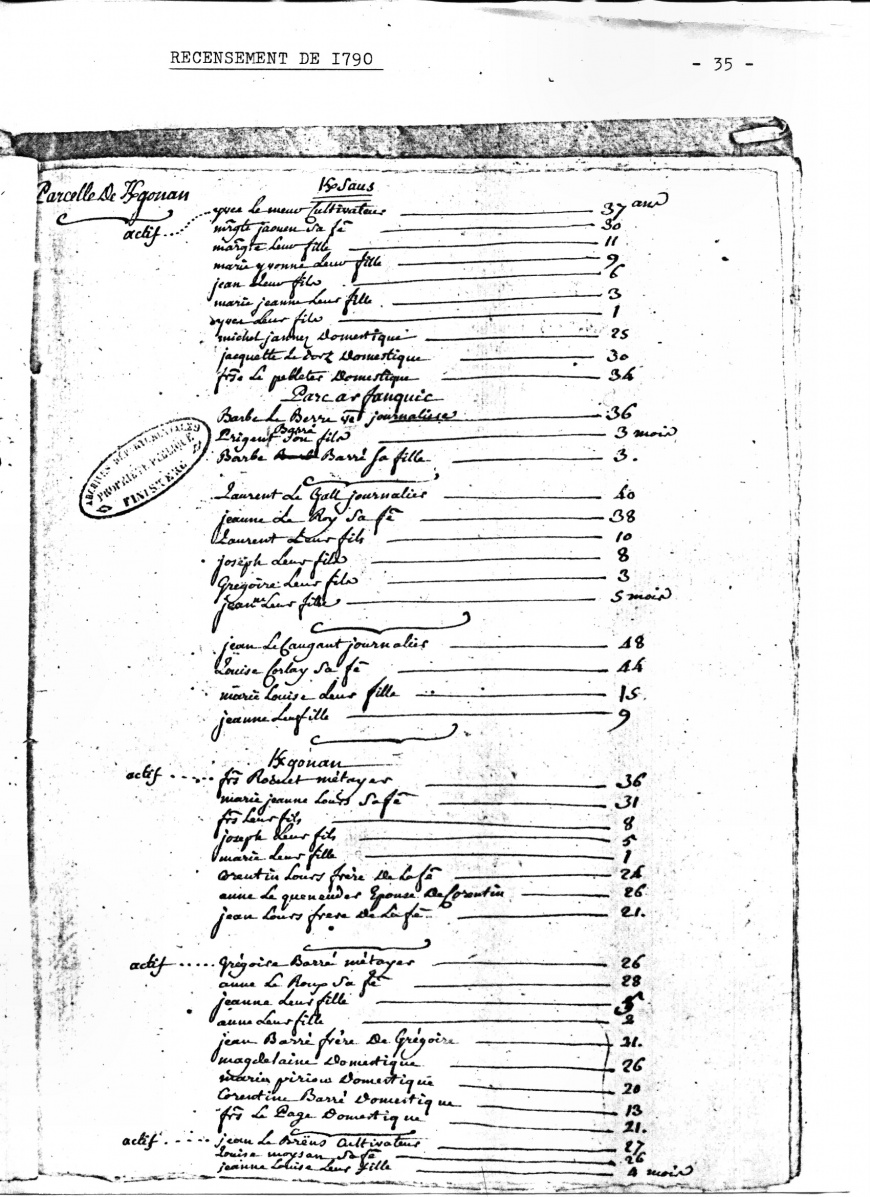 RECENSEMENT DE I790
- 35 -
Parcelle De Kgonan
KSaus
actif yves Le meur Cultivateur 37 ans
mgte jaouen Sa fe 30
margte Leur fille 11
marie yvonne Leur fille 9
jean Leur fils 6
marie jeanne Leur fille 3
yves Leur fils 1
michel jannez Domestique 25
jacquette Le dorz Domestique 30
frs Le pebleter Domestique 34
Parc ar fanquic
Barbe Le Berre ve journaliere 36
Prigent Barré Son fils 3 mois
Barbe Barré Sa fille 3.
ARCHIVES DÉPARTEMENTALES
PROPRIÉTÉ PUBLIQUE
FINISTERE
Laurent Le Gall journalier 40
jeanne Le Roy Sa fe 38
Laurent Leur fils 10
joseph Leur fils 8
Gregoire Leur fils 3
jean Leur fils 5 mois
jean Le Caugant journalier 48
Louise Corlay Sa fe 44
marie Louise Leur fille 15
jeanne Leur fille 9
Kgonan
actif frs Rosuet métayer 36
marie jeanne Lours Sa fe 31
frs Leur fils 8
joseph Leur fils 5
marie Leur fille 1
Corentin Lours frère De La fe 24
anne Le queneuder Epouse De Corentin 26
jean Lours frere De La fe 21.
actif Grégoire Barré métayer 26
anne Le Roux Sa fe 28
jeanne Leur fille 5
anne Leur fille 2
jean Barré frère De Grégoire 21.
magdelaine Domestique 26
marie piriou Domestique 20
Corentine Barré Domestique 13
frs Le Page Domestique 21.
actif jean Le Bréus Cultivateur 27
Louise moysan Sa fe 26
jeanne Louise Leur fille 4 mois